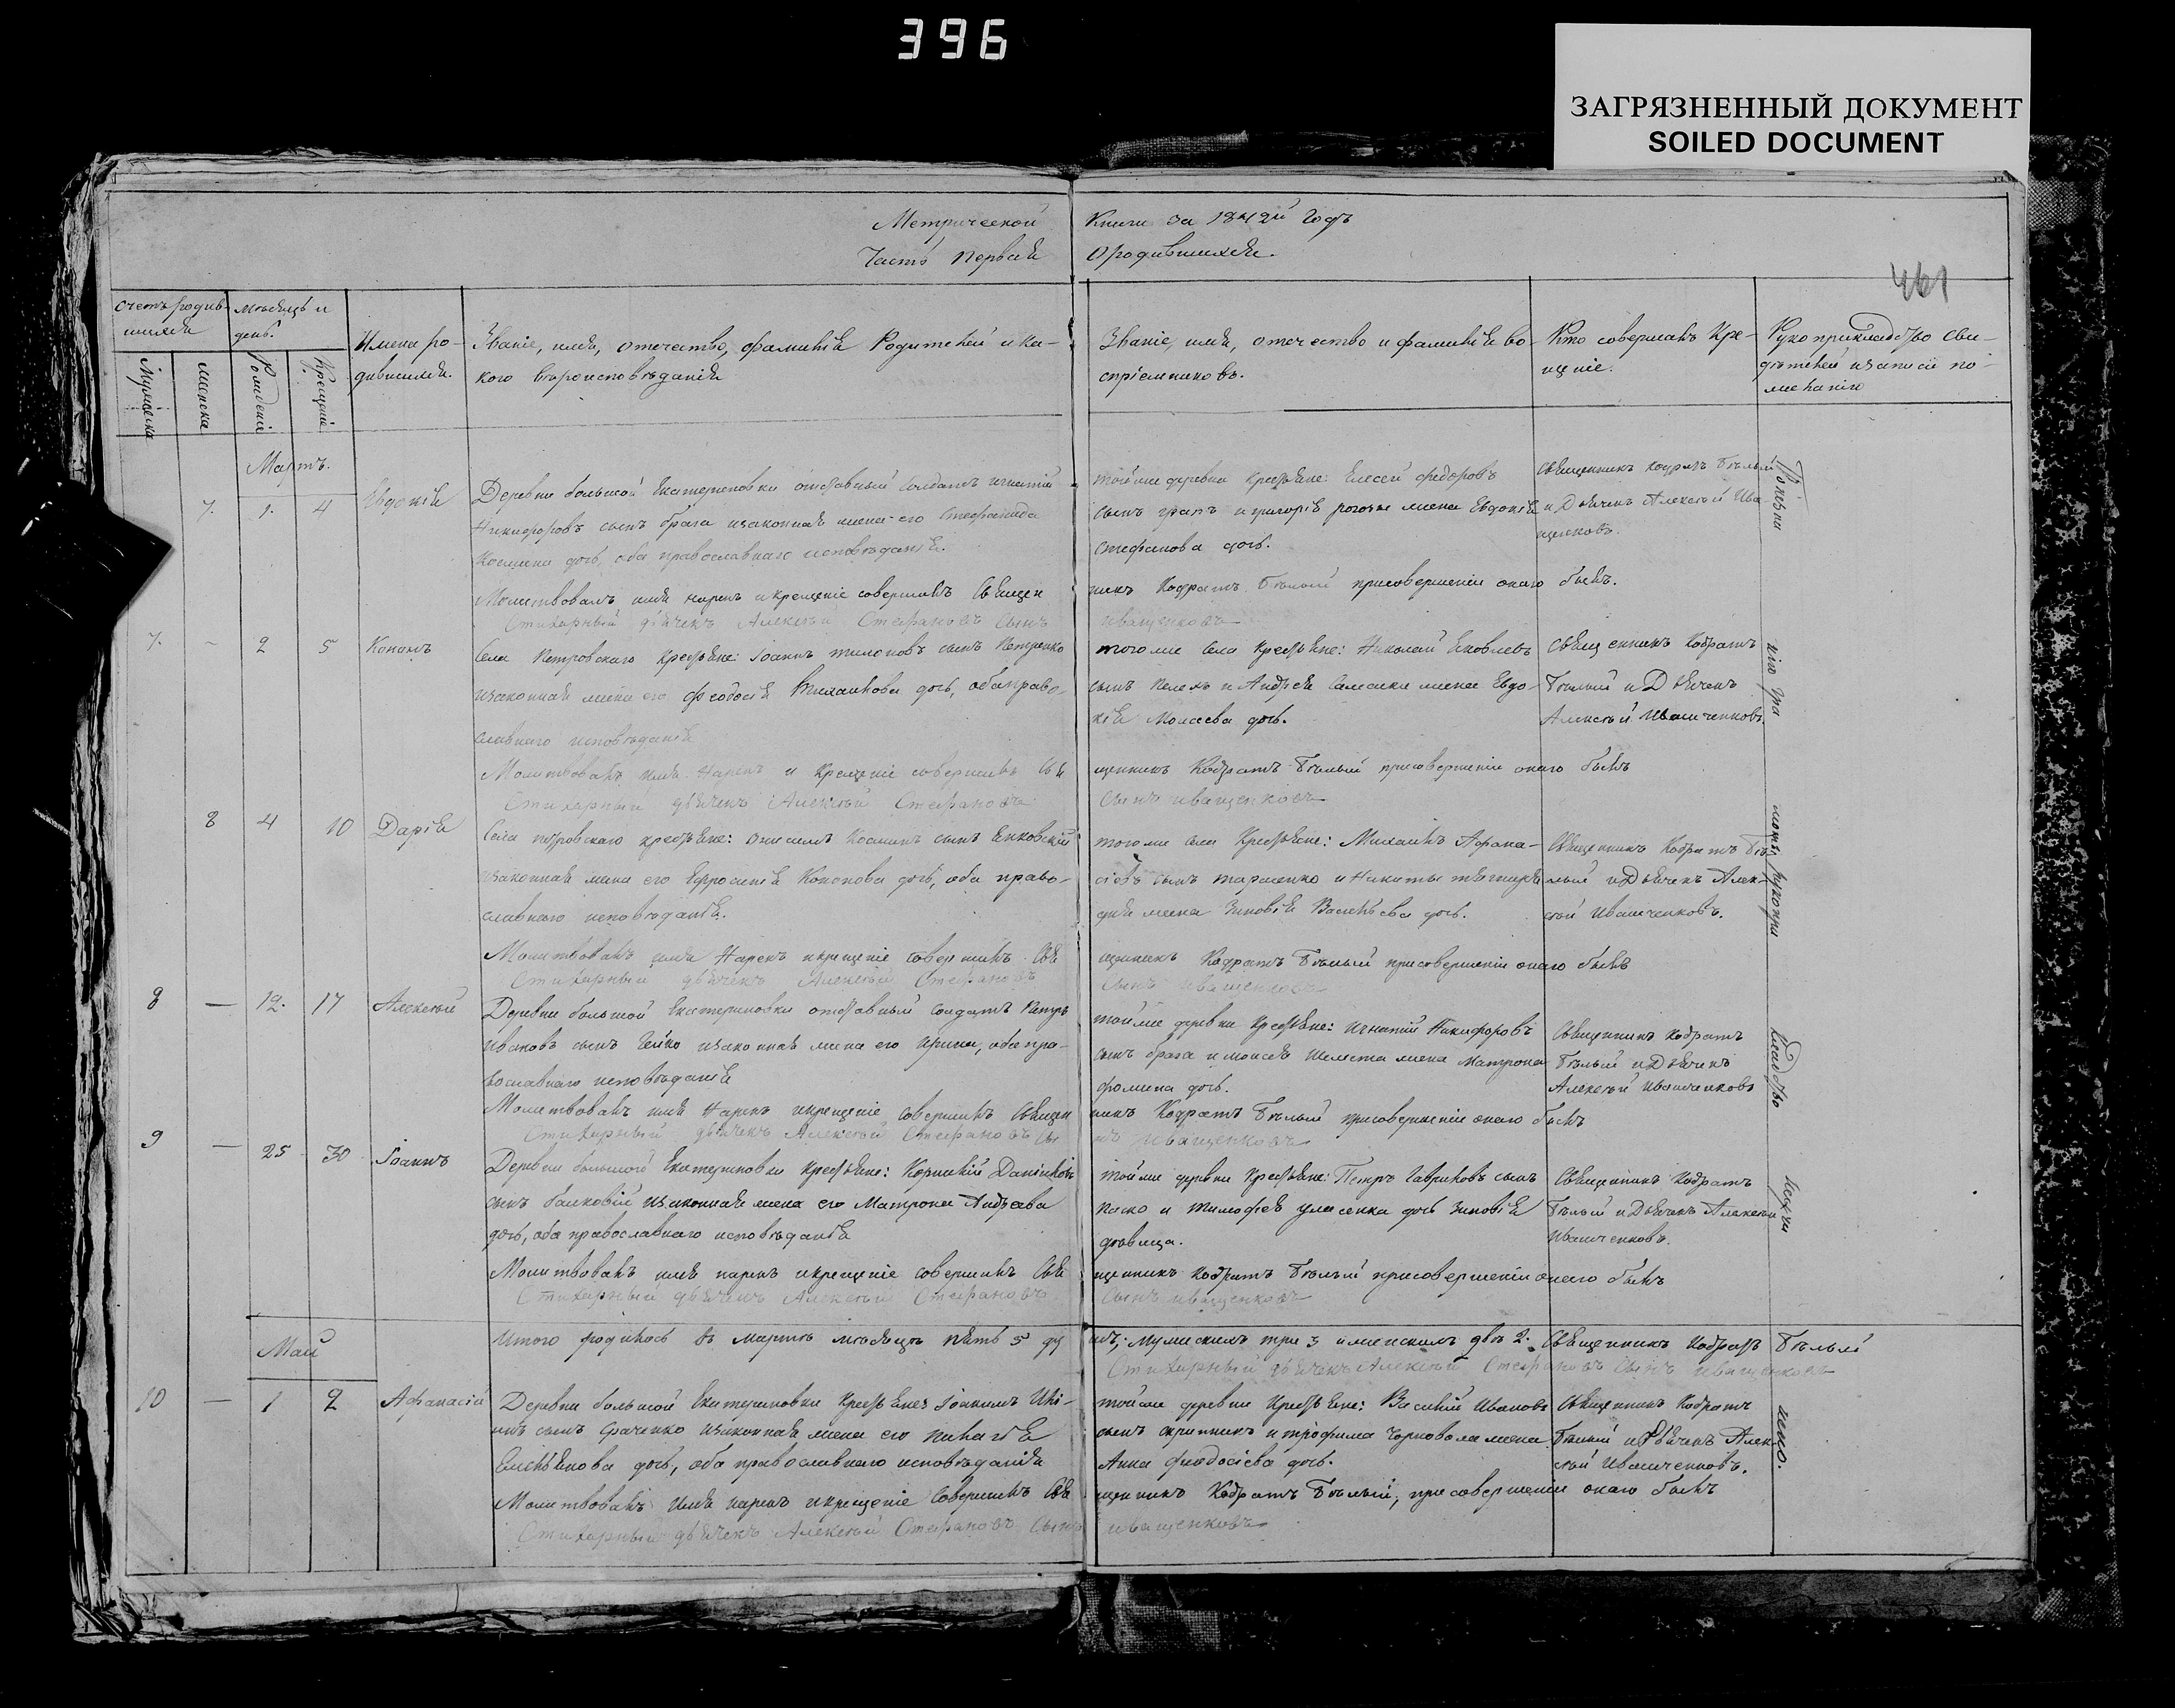 396
ЗАГРЯЗНЕННЫЙ ДОКУМЕНТ
SOILED DOCUMENT
Метрической Книги за 1842й Годъ
Часть первая О родившихся.
461
Счетъ родив-
шихся
Мѣсяцъ и
день.
Мужеска
Женска
Рожденія
Крещенія
Имена ро-
дившихся.
Званіе, имя, отечество, фамилія Родителей и ка-
кого вѣроисповѣданія
Званіе, имя, отечество и фамилія во-
спріемниковъ.
Кто совершалъ Кре-
щеніе.
Рукоприкладство сви-
дѣтелей
Мартъ.
7. 1. 4 Евдокія
Деревни большой Екатериновки отставный солдатъ Игнатій
Никифоровъ сынъ и законная жена его Стефанида
дочь, оба православнаго исповѣданія.
тойже деревни крестьяне: Елисей Федоровъ
сынъ и Григорія жена Евдокія
Стефанова дочь.
Священникъ Кодратъ Бѣлый
и Дьячекъ Алексѣй Ива-
щенковъ.
Молитвовалъ, имя нарекъ и крещеніе совершилъ Священ
никъ Кодратъ Бѣлый при совершеніи онаго былъ.
Стихарный дьячекъ Алексѣй Стефановъ сынъ Иващенковъ
7. - 2 5 Кононъ
Села Петровскаго крестьяне: Іоаннъ сынъ Петренко
и законная жена его Феодосія Михаилова дочь, оба право-
славнаго исповѣданія
того же села крестьяне: Николай Яковлевъ
сынъ и Андрея жена Евдо-
кія Моисеева дочь.
Священникъ Кодратъ
Бѣлый и Дьячекъ
Алексѣй Иващенковъ.
Молитвовалъ имя нарекъ и крещеніе совершилъ Свя
щенникъ Кодратъ Бѣлый при совершеніи онаго былъ
Стихарный дьячекъ Алексѣй Стефановъ сынъ Иващенковъ
8 4 10 Дарія
Села петровскаго крестьяне: Онисимъ Косминъ сынъ Янковскій
и законная жена его Ефросинія Кононова дочь, оба право-
славнаго исповѣданія.
того же села крестьяне: Михаилъ Афана-
сіевъ сынъ тарасенко и Никиты
жена Зиновія Василіева дочь.
Священникъ Кодратъ Бѣ
лый и Дьячекъ Алек-
сѣй Иващенковъ.
Молитвовалъ имя нарекъ и крещеніе совершилъ Свя
щенникъ Кодратъ Бѣлый при совершеніи онаго былъ
Стихарный дьячекъ Алексѣй Стефановъ сынъ Иващенковъ
8 — 12. 17 Алексѣй
Деревни большой Екатериновки отставный солдатъ Петръ
Ивановъ сынъ и законная жена его Ирина, оба пра-
вославнаго исповѣданія
тойже деревни крестьяне: Игнатій Никифоровъ
сынъ и Моисея Шелеста жена Матрона
Фомина дочь.
Священникъ Кодратъ
Бѣлый и Дьячекъ
Алексѣй Иващенковъ
Молитвовалъ имя нарекъ и крещеніе совершилъ Священ
никъ Кодратъ Бѣлый при совершеніи онаго былъ
Стихарный дьячекъ Алексѣй Стефановъ сынъ Иващенковъ
9 — 25 30 Іоаннъ
Деревни большой Екатериновки крестьяне: Корнилій Даніиловъ
сынъ и законная жена его Матрона Андреева
дочь, оба православнаго исповѣданія
тойже деревни крестьяне: Петръ Гавриловъ сынъ
и Тимофея дочь Зиновія
дѣвица.
Священникъ Кодратъ
Бѣлый и Дьячекъ Алексѣй
Иващенковъ.
Молитвовалъ имя нарекъ и крещеніе совершилъ Свя
щенникъ Кодратъ Бѣлый при совершеніи онаго былъ
Стихарный дьячекъ Алексѣй Стефановъ сынъ Иващенковъ
Итого родилось въ мартѣ мѣсяцѣ пять 5 ду
шъ; мужескихъ три 3 и женскихъ двѣ 2. Священникъ Кодратъ Бѣлый
Стихарный дьячекъ Алексѣй Стефановъ сынъ Иващенковъ
Май
10 — 1 2 Афанасій
Деревни большой Екатериновки крестьяне: Іоакимъ
сынъ и законная жена его Пелагія
Емеліянова дочь, оба православнаго исповѣданія
тойже деревни крестьяне: Василій Ивановъ
сынъ скрипникъ и трофима Чорновола жена
Анна Феодосіева дочь.
Священникъ Кодратъ
Бѣлый и Дьячекъ Алек-
сѣй Иващенковъ.
Молитвовалъ имя нарекъ и крещеніе совершилъ Свя
щенникъ Кодратъ Бѣлый, при совершеніи онаго былъ
Стихарный дьячекъ Алексѣй Стефановъ сынъ Иващенковъ